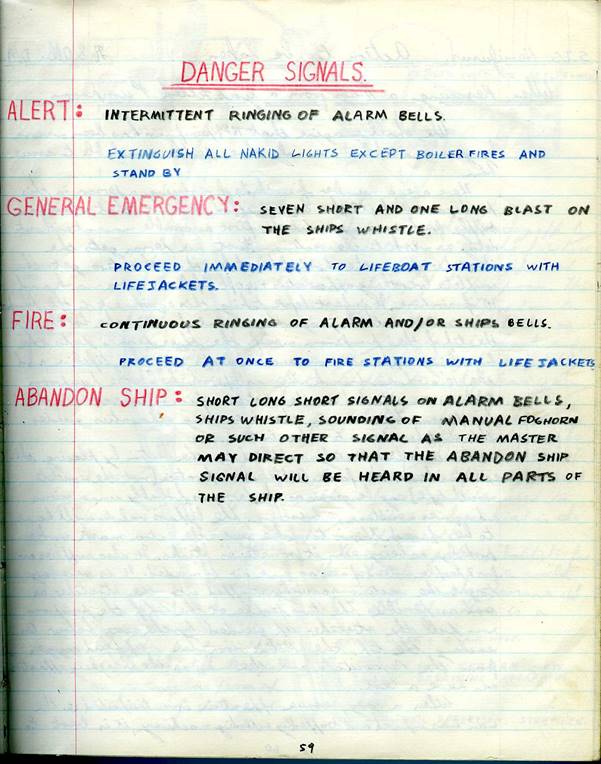 DANGER SIGNALS.
ALERT: INTERMITTENT RINGING OF ALARM BELLS.
EXTINGUISH ALL NAKID LIGHTS EXCEPT BOILER FIRES AND
STAND BY
GENERAL EMERGENCY: SEVEN SHORT AND ONE LONG BLAST ON
THE SHIPS WHISTLE.
PROCEED IMMEDIATELY TO LIFEBOAT STATIONS WITH
LIFEJACKETS.
FIRE: CONTINUOUS RINGING OF ALARM AND/OR SHIPS BELLS.
PROCEED AT ONCE TO FIRE STATIONS WITH LIFEJACKETS
ABANDON SHIP: SHORT LONG SHORT SIGNALS ON ALARM BELLS,
SHIPS WHISTLE, SOUNDING OF MANUAL FOGHORN
OR SUCH OTHER SIGNAL AS THE MASTER
MAY DIRECT SO THAT THE ABANDON SHIP
SIGNAL WILL BE HEARD IN ALL PARTS OF
THE SHIP.
59